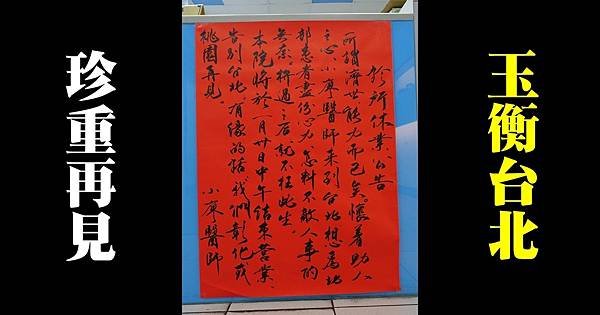 玉衡台北
診所休業公告
所謂濟世能力而已矣。懷着助人
之心,小廖醫師來到台北想為北
部患者盡份心力,怎料不敵人事的
無奈、拚過之后就不枉此生。
本院將於一月廿日中午結束營業、
告別台北,有緣的話我們彰化或
桃園再見。
小廖醫師
珍重再見